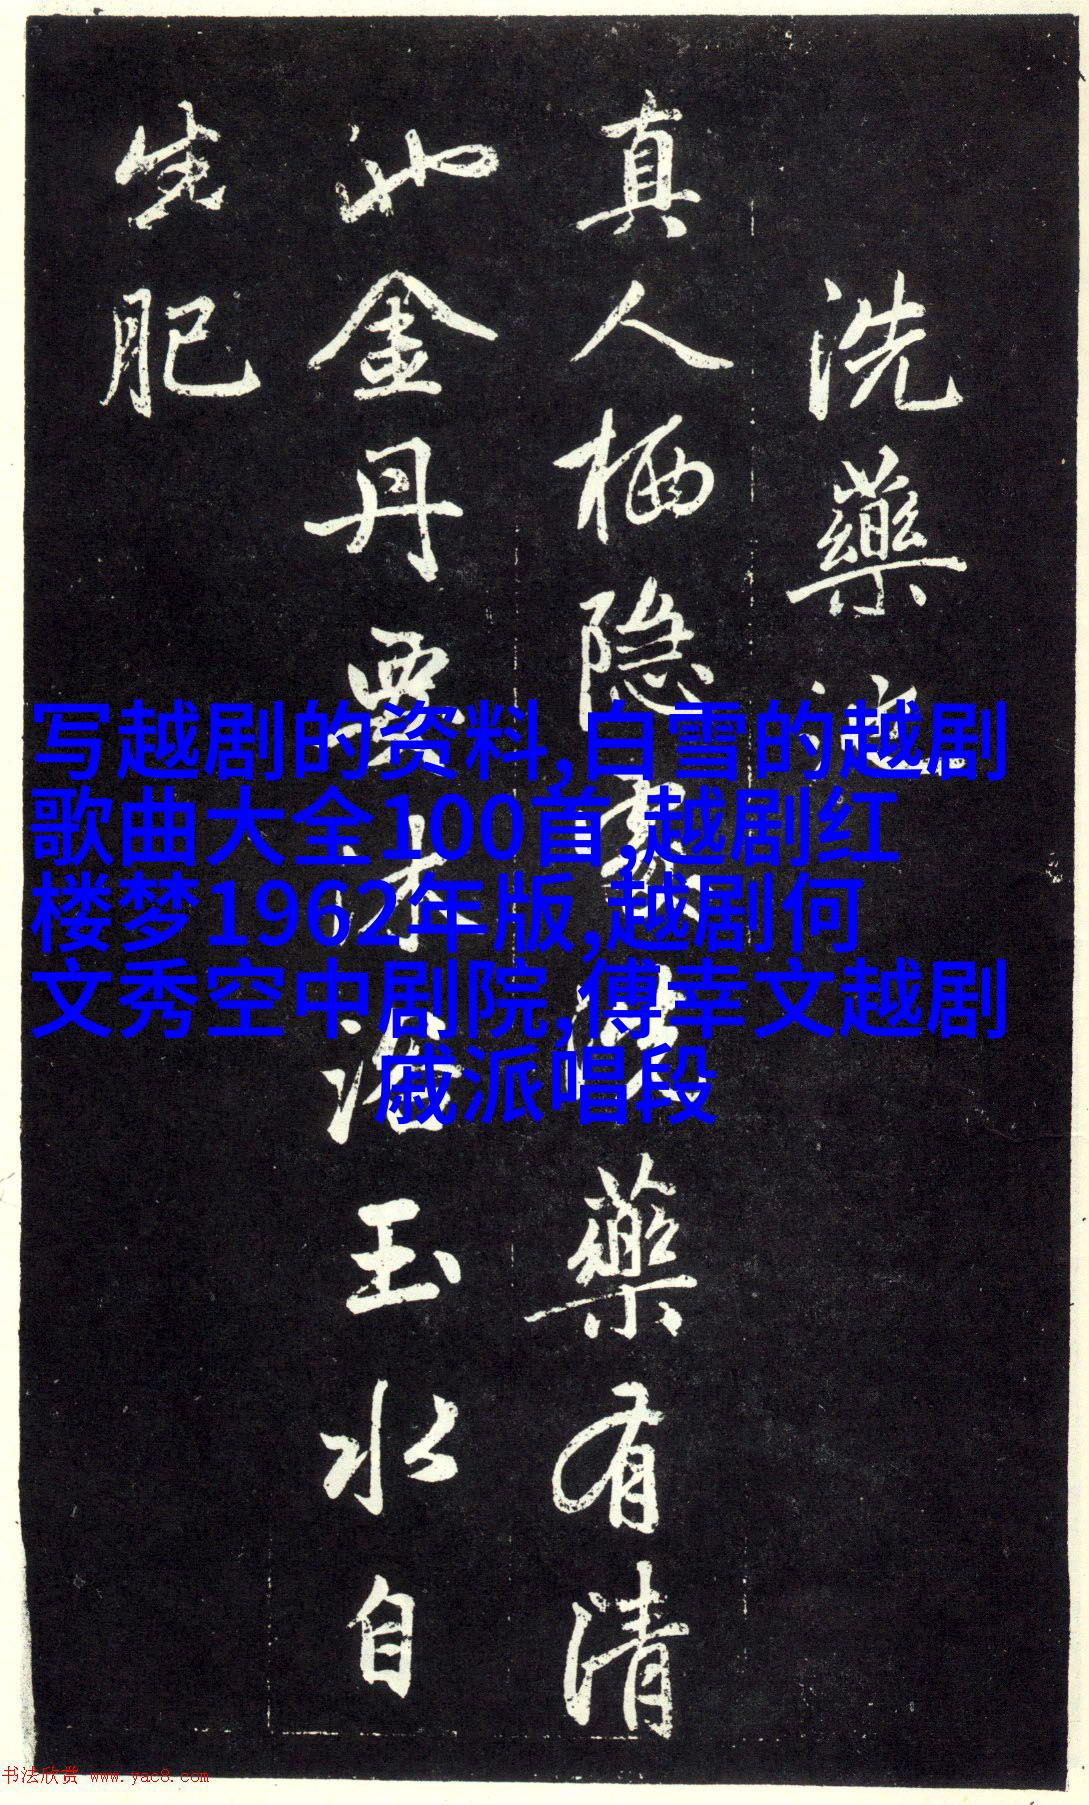 洗藥池
真人栖隐處洗藥有清
池金丹要沐浴玉水自
生肥
写越剧的资料,白雪的越剧
歌曲大全100首,越剧红
楼梦1962年版,越剧何
文秀空中剧院,傅幸文越剧
戚派唱段
书法欣赏 www.yac8.com